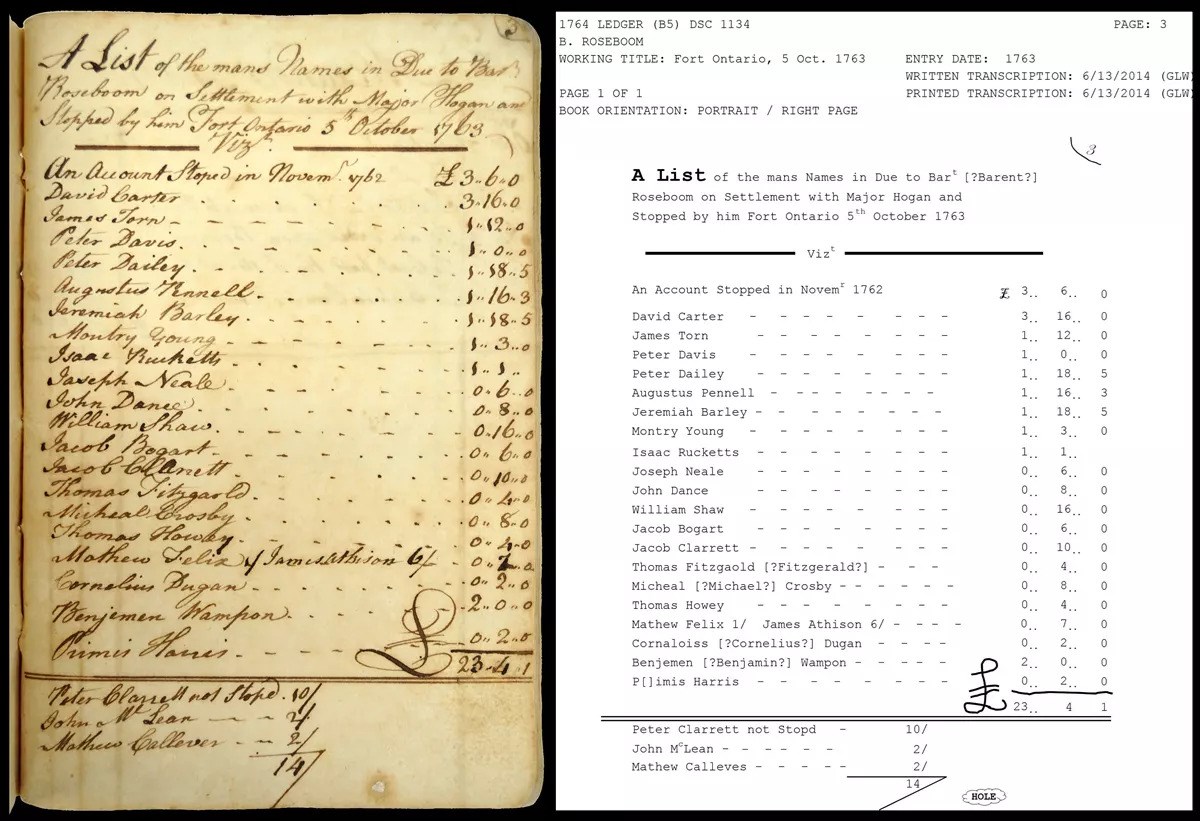 3
A List of the mans Names in Due to Bar^t
Roseboom on Settlement with Major Hogan and
Stopped by him Fort Ontario 5th October 1763
Viz^t
An Account Stoped in Novem^r. 1762 £ 3.. 6.. 0
David Carter 3.. 16.. 0
James Torn 1.. 12.. 0
Peter Davis 1.. 0.. 0
Peter Dailey 1.. 18.. 5
Augustus Pennell 1.. 16.. 3
Jeremiah Barley 1.. 18.. 5
Montry Young 1.. 3.. 0
Isaac Rucketts 1.. 1..
Joseph Neale 0.. 6.. 0
John Dance 0.. 8.. 0
William Shaw 0.. 16.. 0
Jacob Bogart 0.. 6.. 0
Jacob Clarrett 0.. 10.. 0
Thomas Fitzgarld 0.. 4.. 0
Micheal Crosby 0.. 8.. 0
Thomas Howey 0.. 4.. 0
Mathew Felix 1/ James Athison 6/ 0.. 7.. 0
Cornelius Dugan 0.. 2.. 0
Benjemen Wampon 2.. 0.. 0
Primis Harris 0.. 2.. 0
£ 23.. 4.. 1
Peter Clarrett not Stopd. 10/
John Mc Lean 2/
Mathew Callever 2/
14/
1764 LEDGER (B5) DSC 1134 PAGE: 3
B. ROSEBOOM
WORKING TITLE: Fort Ontario, 5 Oct. 1763 ENTRY DATE: 1763
WRITTEN TRANSCRIPTION: 6/13/2014 (GLW
PAGE 1 OF 1 PRINTED TRANSCRIPTION: 6/13/2014 (GLW
BOOK ORIENTATION: PORTRAIT / RIGHT PAGE
3
A List of the mans Names in Due to Bar^t [?Barent?]
Roseboom on Settlement with Major Hogan and
Stopped by him Fort Ontario 5th October 1763
Viz^t
An Account Stopped in Novem^r 1762 £ 3.. 6.. 0
David Carter - - - - - - - - 3.. 16.. 0
James Torn - - - - - - - - 1.. 12.. 0
Peter Davis - - - - - - - - 1.. 0.. 0
Peter Dailey - - - - - - - - 1.. 18.. 5
Augustus Pennell - - - - - - - - 1.. 16.. 3
Jeremiah Barley - - - - - - - - 1.. 18.. 5
Montry Young - - - - - - - - 1.. 3.. 0
Isaac Rucketts - - - - - - - - 1.. 1..
Joseph Neale - - - - - - - - 0.. 6.. 0
John Dance - - - - - - - - 0.. 8.. 0
William Shaw - - - - - - - - 0.. 16.. 0
Jacob Bogart - - - - - - - - 0.. 6.. 0
Jacob Clarrett - - - - - - - - 0.. 10.. 0
Thomas Fitzgaold [?Fitzgerald?] - - - 0.. 4.. 0
Micheal [?Michael?] Crosby - - - - - - 0.. 8.. 0
Thomas Howey - - - - - - - - 0.. 4.. 0
Mathew Felix 1/ James Athison 6/ - - - - 0.. 7.. 0
Cornaloiss [?Cornelius?] Dugan - - - - 0.. 2.. 0
Benjemen [?Benjamin?] Wampon - - - - - 2.. 0.. 0
P[]imis Harris - - - - - - - - 0.. 2.. 0
£ 23.. 4 1
Peter Clarrett not Stopd - 10/
John McLean - - - - - - 2/
Mathew Calleves - - - - - 2/
14
HOLE